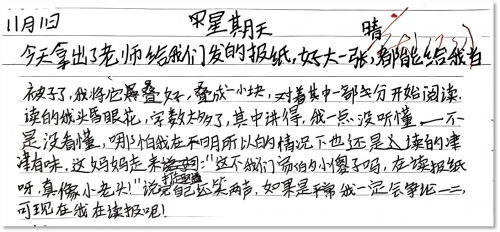 11月11日 星期天 晴
今天拿出了老师给我们发的报纸,好大一张,都能给我当
被子了,我将它叠好,叠成一小块,对着其中一部分开始阅读.
读的我头昏眼花,字数太多了,其中讲得,我一点没听懂,一不
是没看懂,哪怕我在不明所以的情况下也还是读的津
津有味,这妈妈走来:"这不我们家的小傻子吗,在读报纸
呀,真像小老头!"说完自己还笑两声,如果是平常我一定会掌她一二,
可现在我在读报呢!